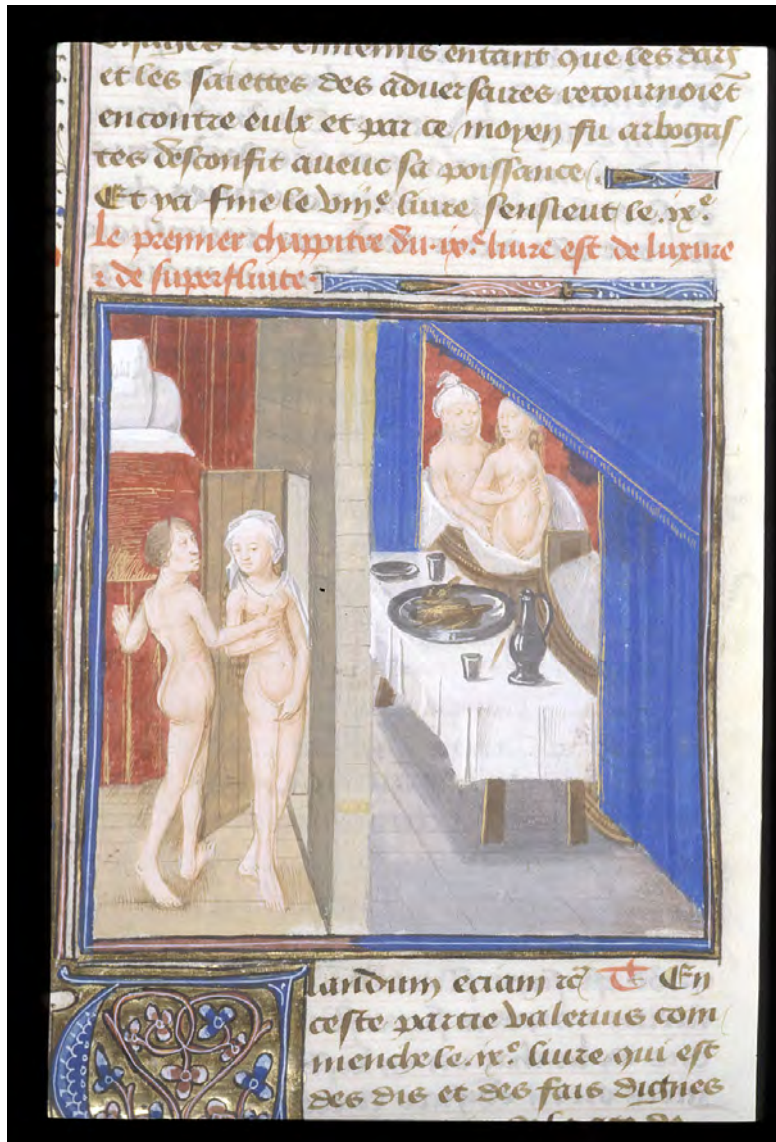 ennemis entant que les dars
et les saiettes des aduersaires retournoiẽt
encontre eulx et par ce moyen fu arbogas
tes desconfit aueuc sa poissance.
Et ya fine le viijͤ. liure sensieut le .ixͤ.
le premier chappitre du .ixͤ. liure est de luxure
⁊ de superfluite.
landum eciam rē En
ceste partie valerius com
menche le .ixͤ. liure qui est
des dis et des fais dignes